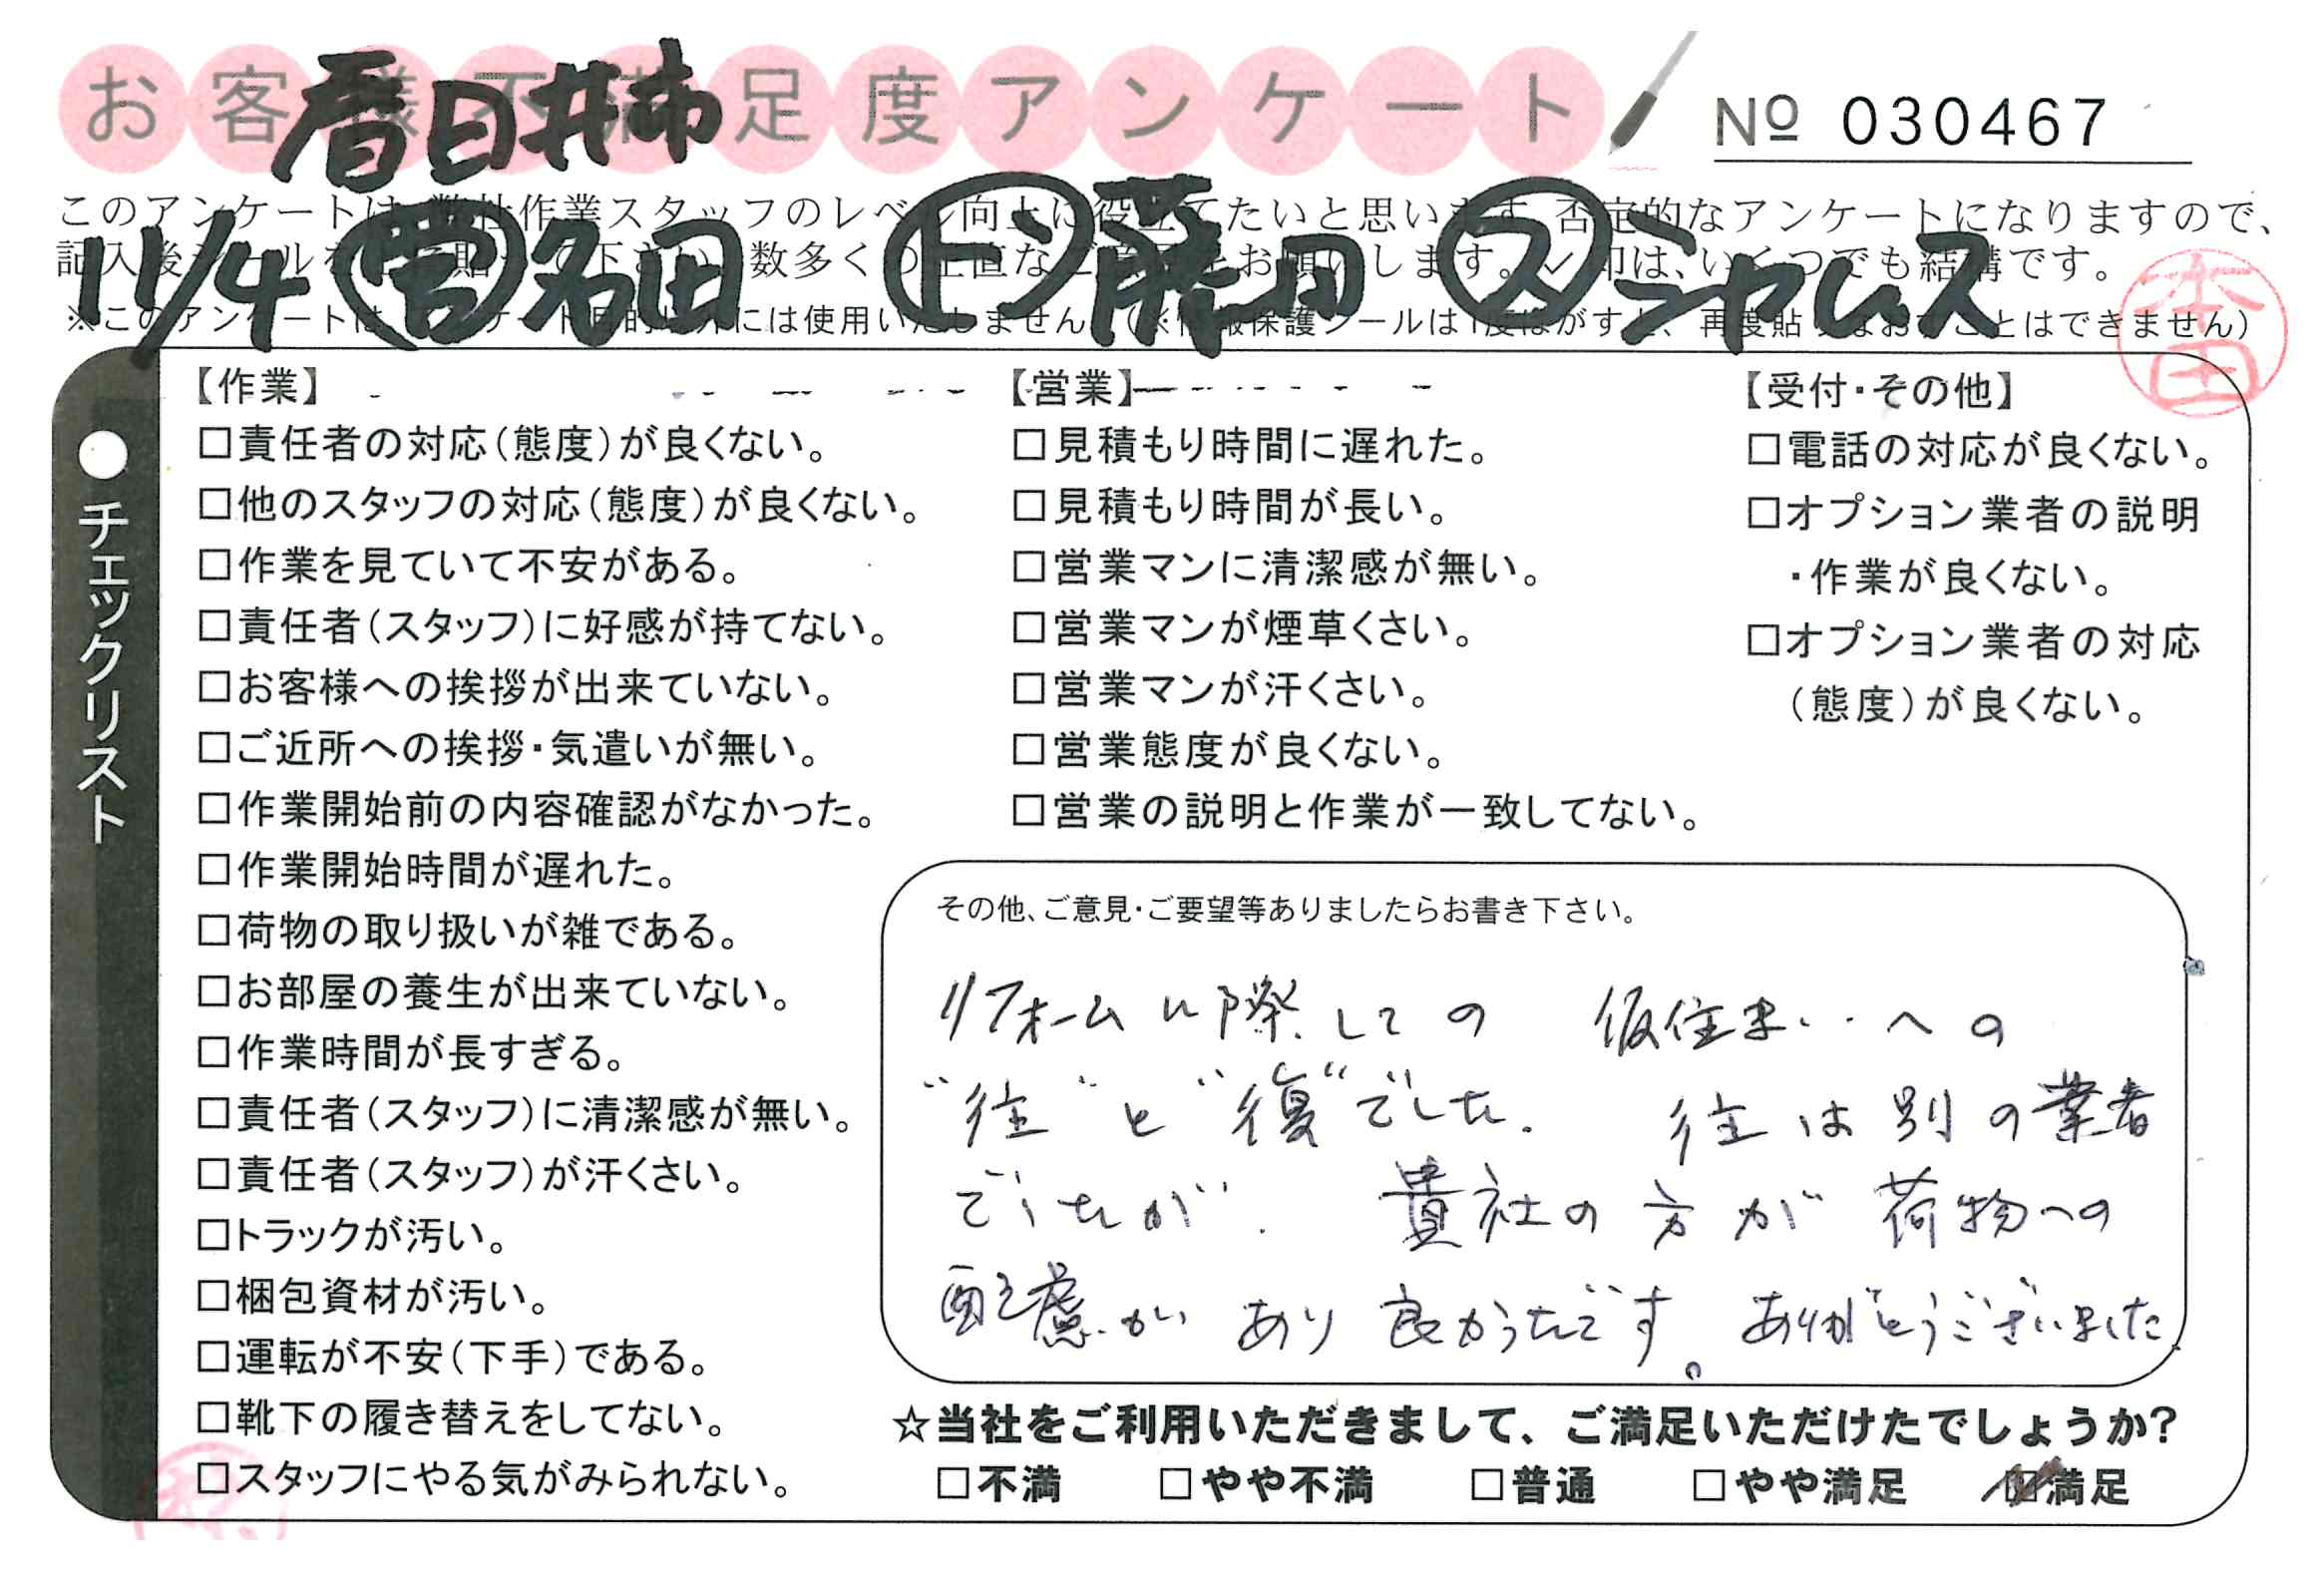 お客様不満足度アンケート
№ 030467
暦日井市
このアンケートは、弊社作業スタッフのレベル向上に役立てたいと思います。否定的なアンケートになりますので、
記入後シールを 貼 下さい。数多くの正直なご意見をお願いします。レ印は、いくつでも結構です。
11/4 営 名田 ド 藤田 ス シャムス
※このアンケートは、アンケート目的以外には使用いたしません。(※情報保護シールは1度はがすと、再度貼りなおすことはできません)
本田
●チェックリスト
【作業】
□責任者の対応(態度)が良くない。
□他のスタッフの対応(態度)が良くない。
□作業を見ていて不安がある。
□責任者(スタッフ)に好感が持てない。
□お客様への挨拶が出来ていない。
□ご近所への挨拶・気遣いが無い。
□作業開始前の内容確認がなかった。
□作業開始時間が遅れた。
□荷物の取り扱いが雑である。
□お部屋の養生が出来ていない。
□作業時間が長すぎる。
□責任者(スタッフ)に清潔感が無い。
□責任者(スタッフ)が汗くさい。
□トラックが汚い。
□梱包資材が汚い。
□運転が不安(下手)である。
□靴下の履き替えをしてない。
□スタッフにやる気がみられない。
【営業】
□見積もり時間に遅れた。
□見積もり時間が長い。
□営業マンに清潔感が無い。
□営業マンが煙草くさい。
□営業マンが汗くさい。
□営業態度が良くない。
□営業の説明と作業が一致してない。
【受付・その他】
□電話の対応が良くない。
□オプション業者の説明
・作業が良くない。
□オプション業者の対応
(態度)が良くない。
その他、ご意見・ご要望等ありましたらお書き下さい。
リフォームに際しての 仮住まいへの
"往"と"復"でした. 往は別の業者
でしたが. 貴社の方が荷物への
配慮があり良かったです。ありがとうございました.
☆当社をご利用いただきまして、ご満足いただけたでしょうか?
□不満 □やや不満 □普通 □やや満足 ☑満足